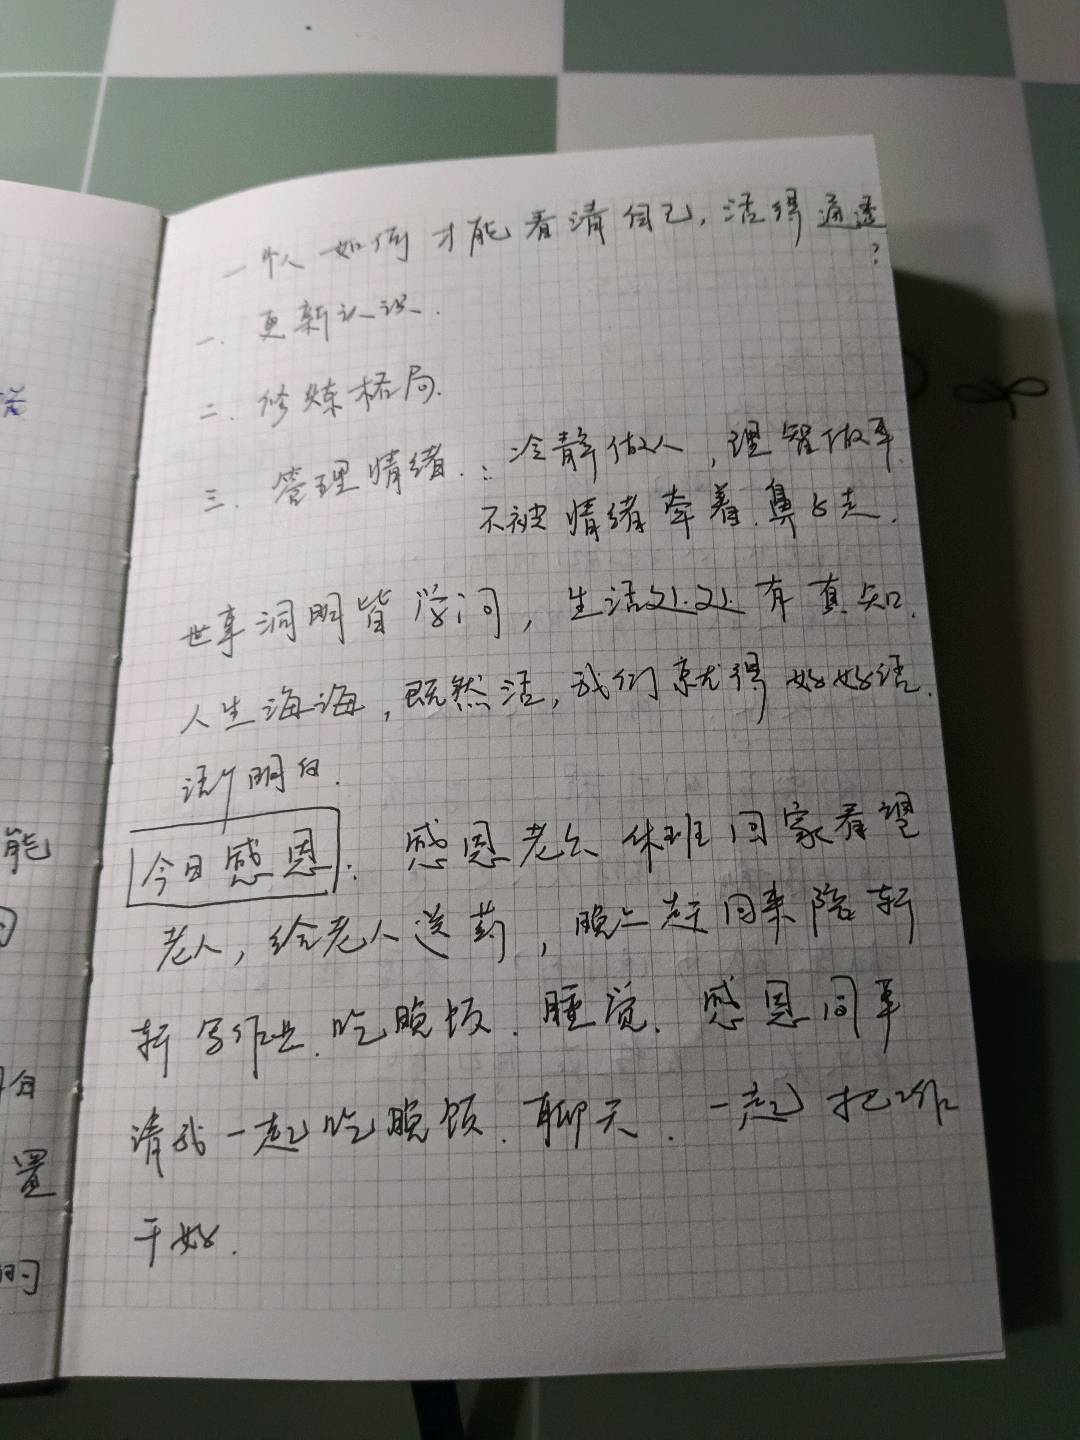 一个人如何才能看清自己,活得通透
?
一.更新认识.
二.修炼格局.
三.管理情绪.:冷静做人,理智做事.
不被情绪牵着.鼻子走.
世事洞明皆学问,生活处处有真知.
人生海海,既然活,我们就得好好活.
活个明白.
今日感恩:感恩老公休班回家看望
老人,给老人送药,晚上赶回来陪轩
轩写作业.吃晚饭.睡觉.感恩同事
请我一起吃晚饭.聊天.一起把工作
干好.
能
白
置
的